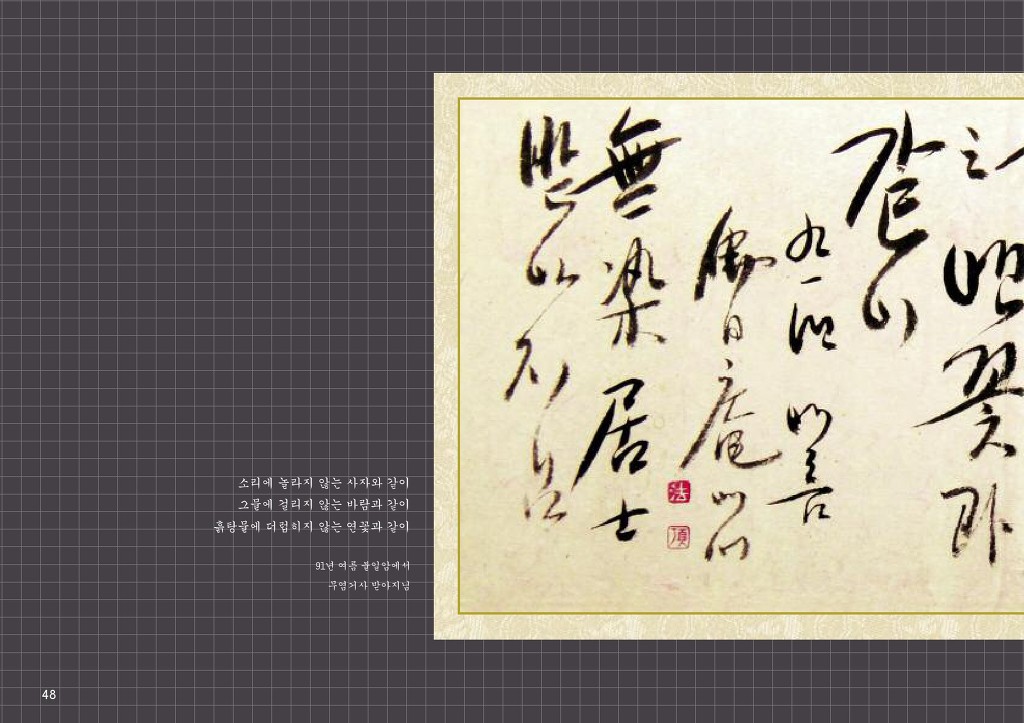 소리에 놀라지 않는 사자와 같이
그물에 걸리지 않는 바람과 같이
흙탕물에 더럽히지 않는 연꽃과 같이
91년 여름 불일암에서
무염거사 받아지님
꽃과
같이
九一년 여름
佛日庵에서
無染居士
받아지님
法
頂
48